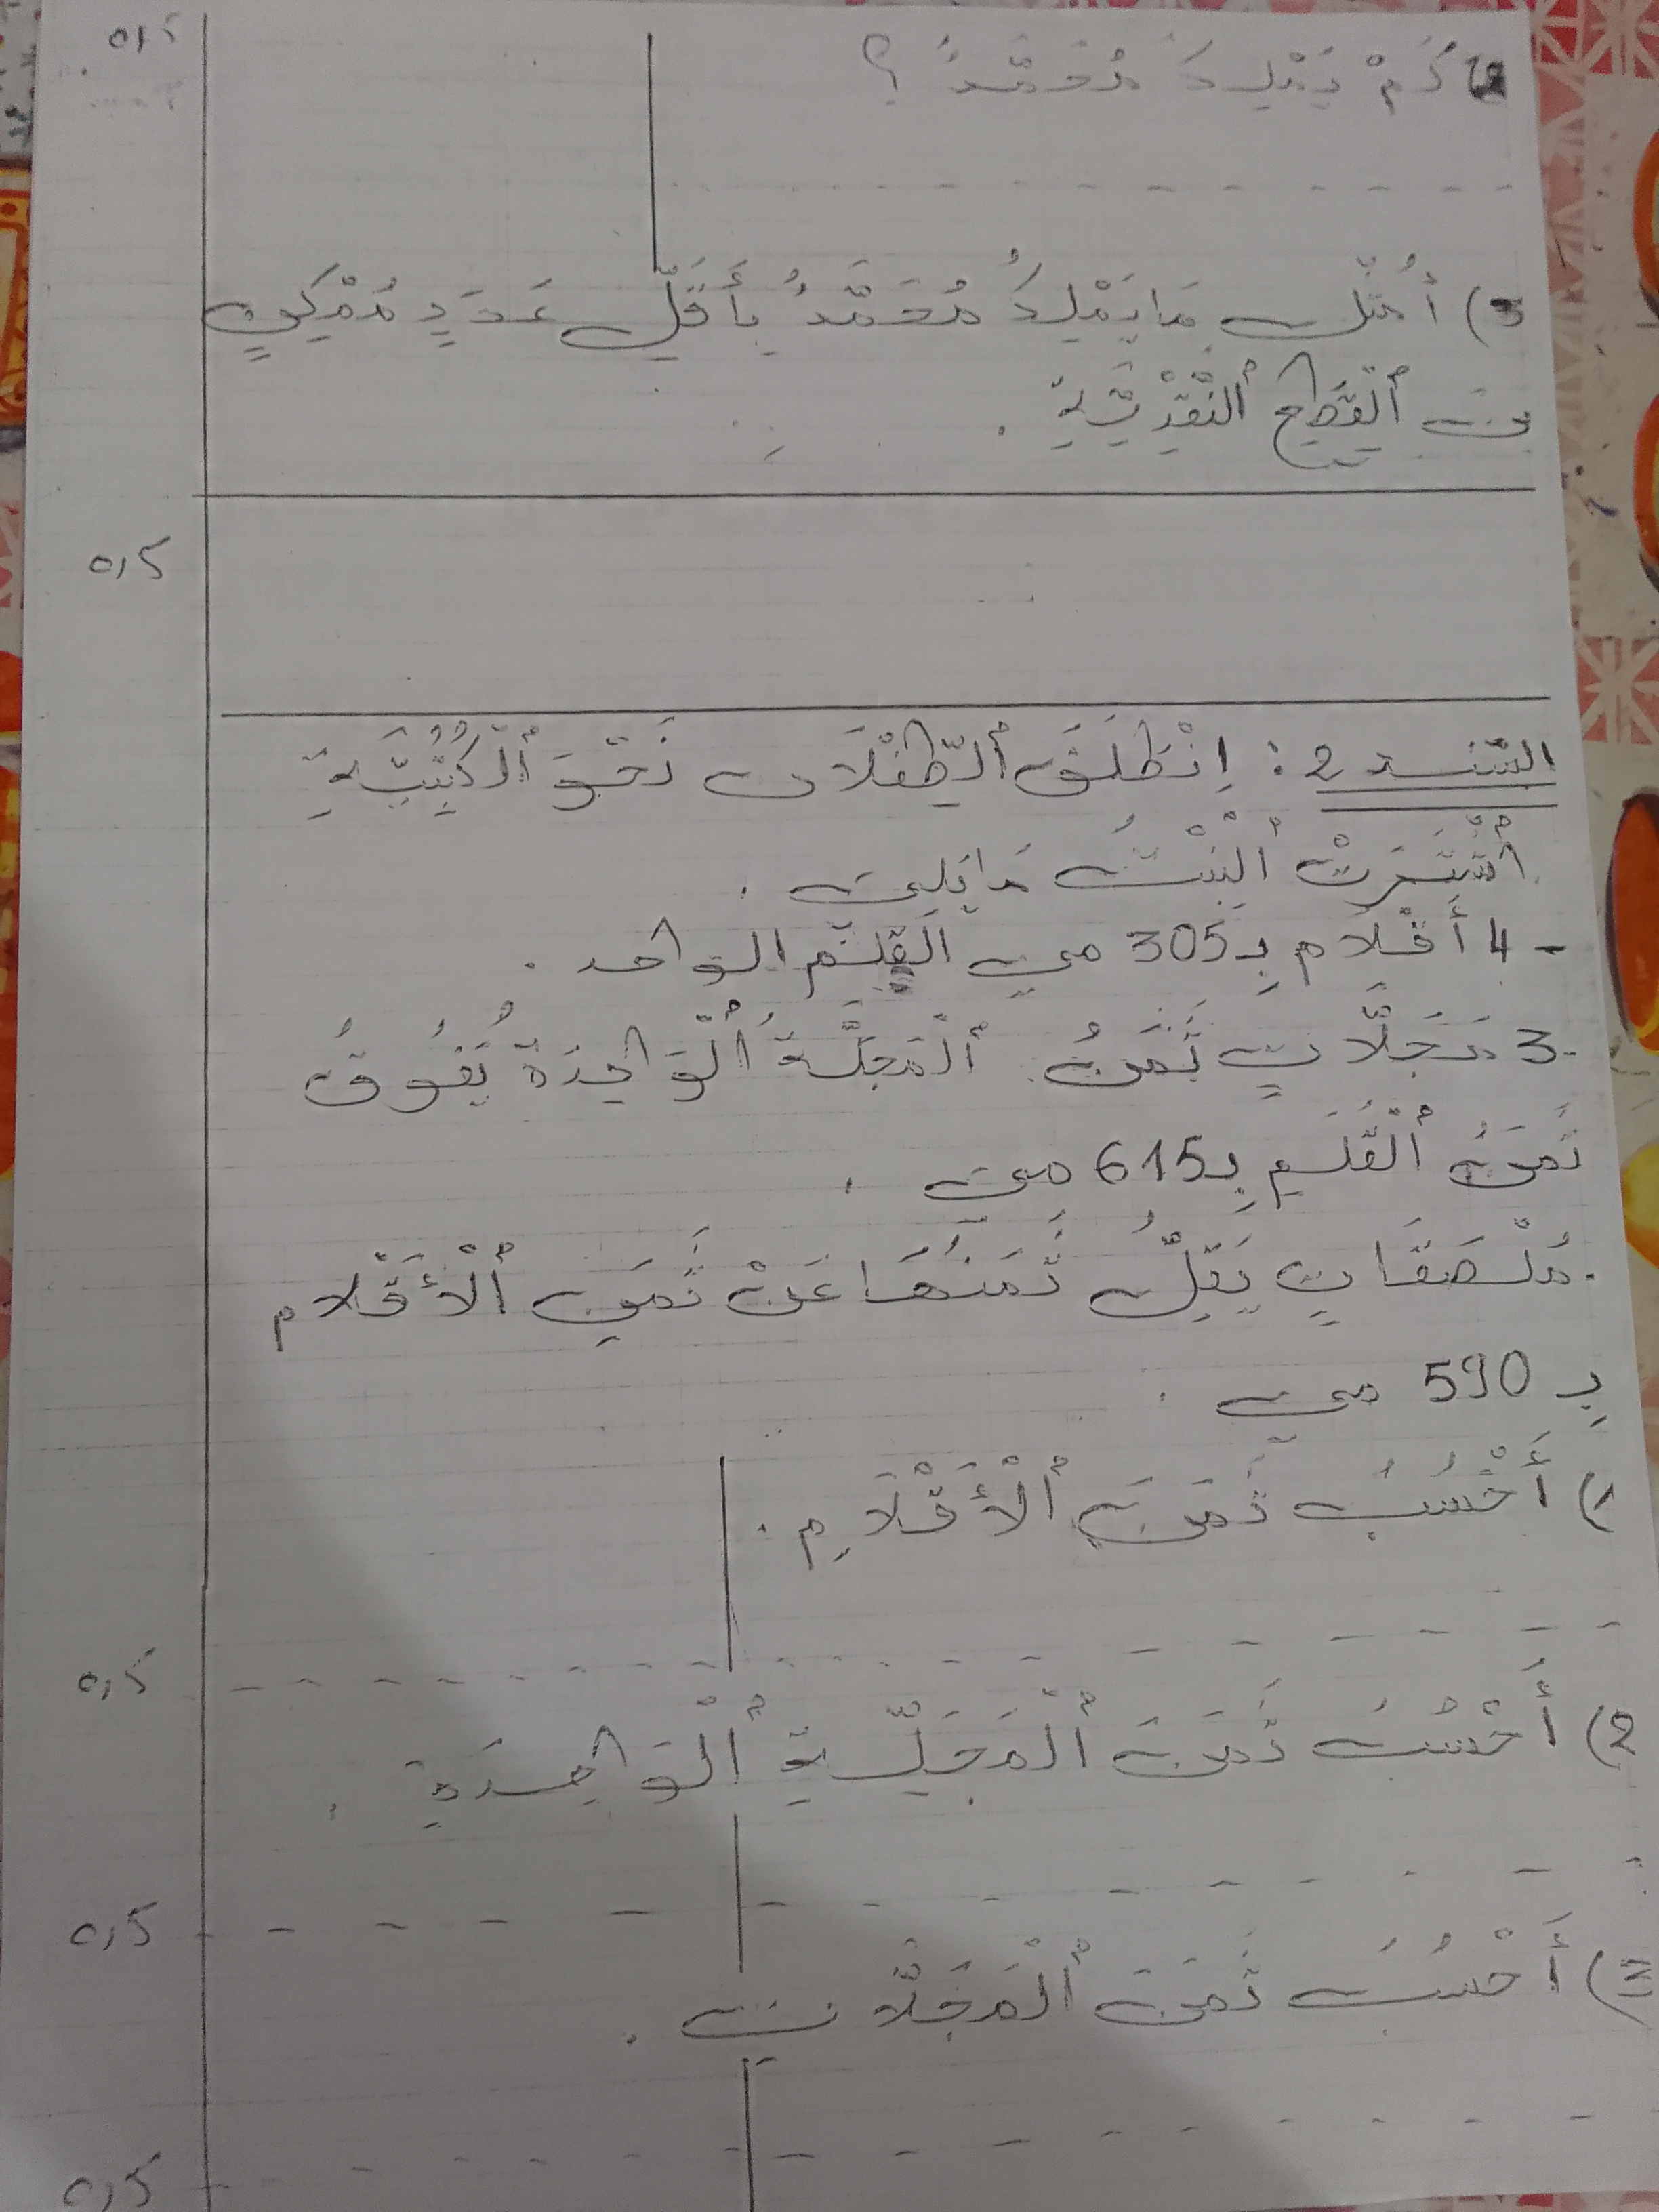 2) كَمْ يَمْلِكُ مُحَمَّدٌ ؟
0,5
3) أُمَثِّلُ مَا يَمْلِكُ مُحَمَّدٌ بِأَقَلِّ عَدَدٍ مُمْكِنٍ
مِنَ ٱلْقِطَعِ ٱلنَّقْدِيَّةِ .
0,5
السّند 2 : اِنْطَلَقَ ٱلطِّفْلَانِ نَحْوَ ٱلْكُتُبِيَّةِ
ٱشْتَرَتْ ٱلْبِنْتُ مَا يَلِي .
- 4 أَقْلَامٍ بِـ 305 مي القلم الواحد .
- 3 مَجَلَّاتٍ ثَمَنُ ٱلْمَجَلَّةِ ٱلْوَاحِدَةِ يَفُوقُ
ثَمَنَ ٱلْقَلَمِ بِـ 615 مي .
. مُلْصَقَاتٍ يَقِلُّ ثَمَنُهَا عَنْ ثَمَنِ ٱلْأَقْلَام
بِـ 590 مي .
1) أَحْسُبُ ثَمَنَ ٱلْأَقْلَامِ .
0,5
2) أَحْسُبُ ثَمَنَ ٱلْمَجَلَّةِ ٱلْوَاحِدَةِ .
0,5
3) أَحْسُبُ ثَمَنَ ٱلْمَجَلَّاتِ .
0,5